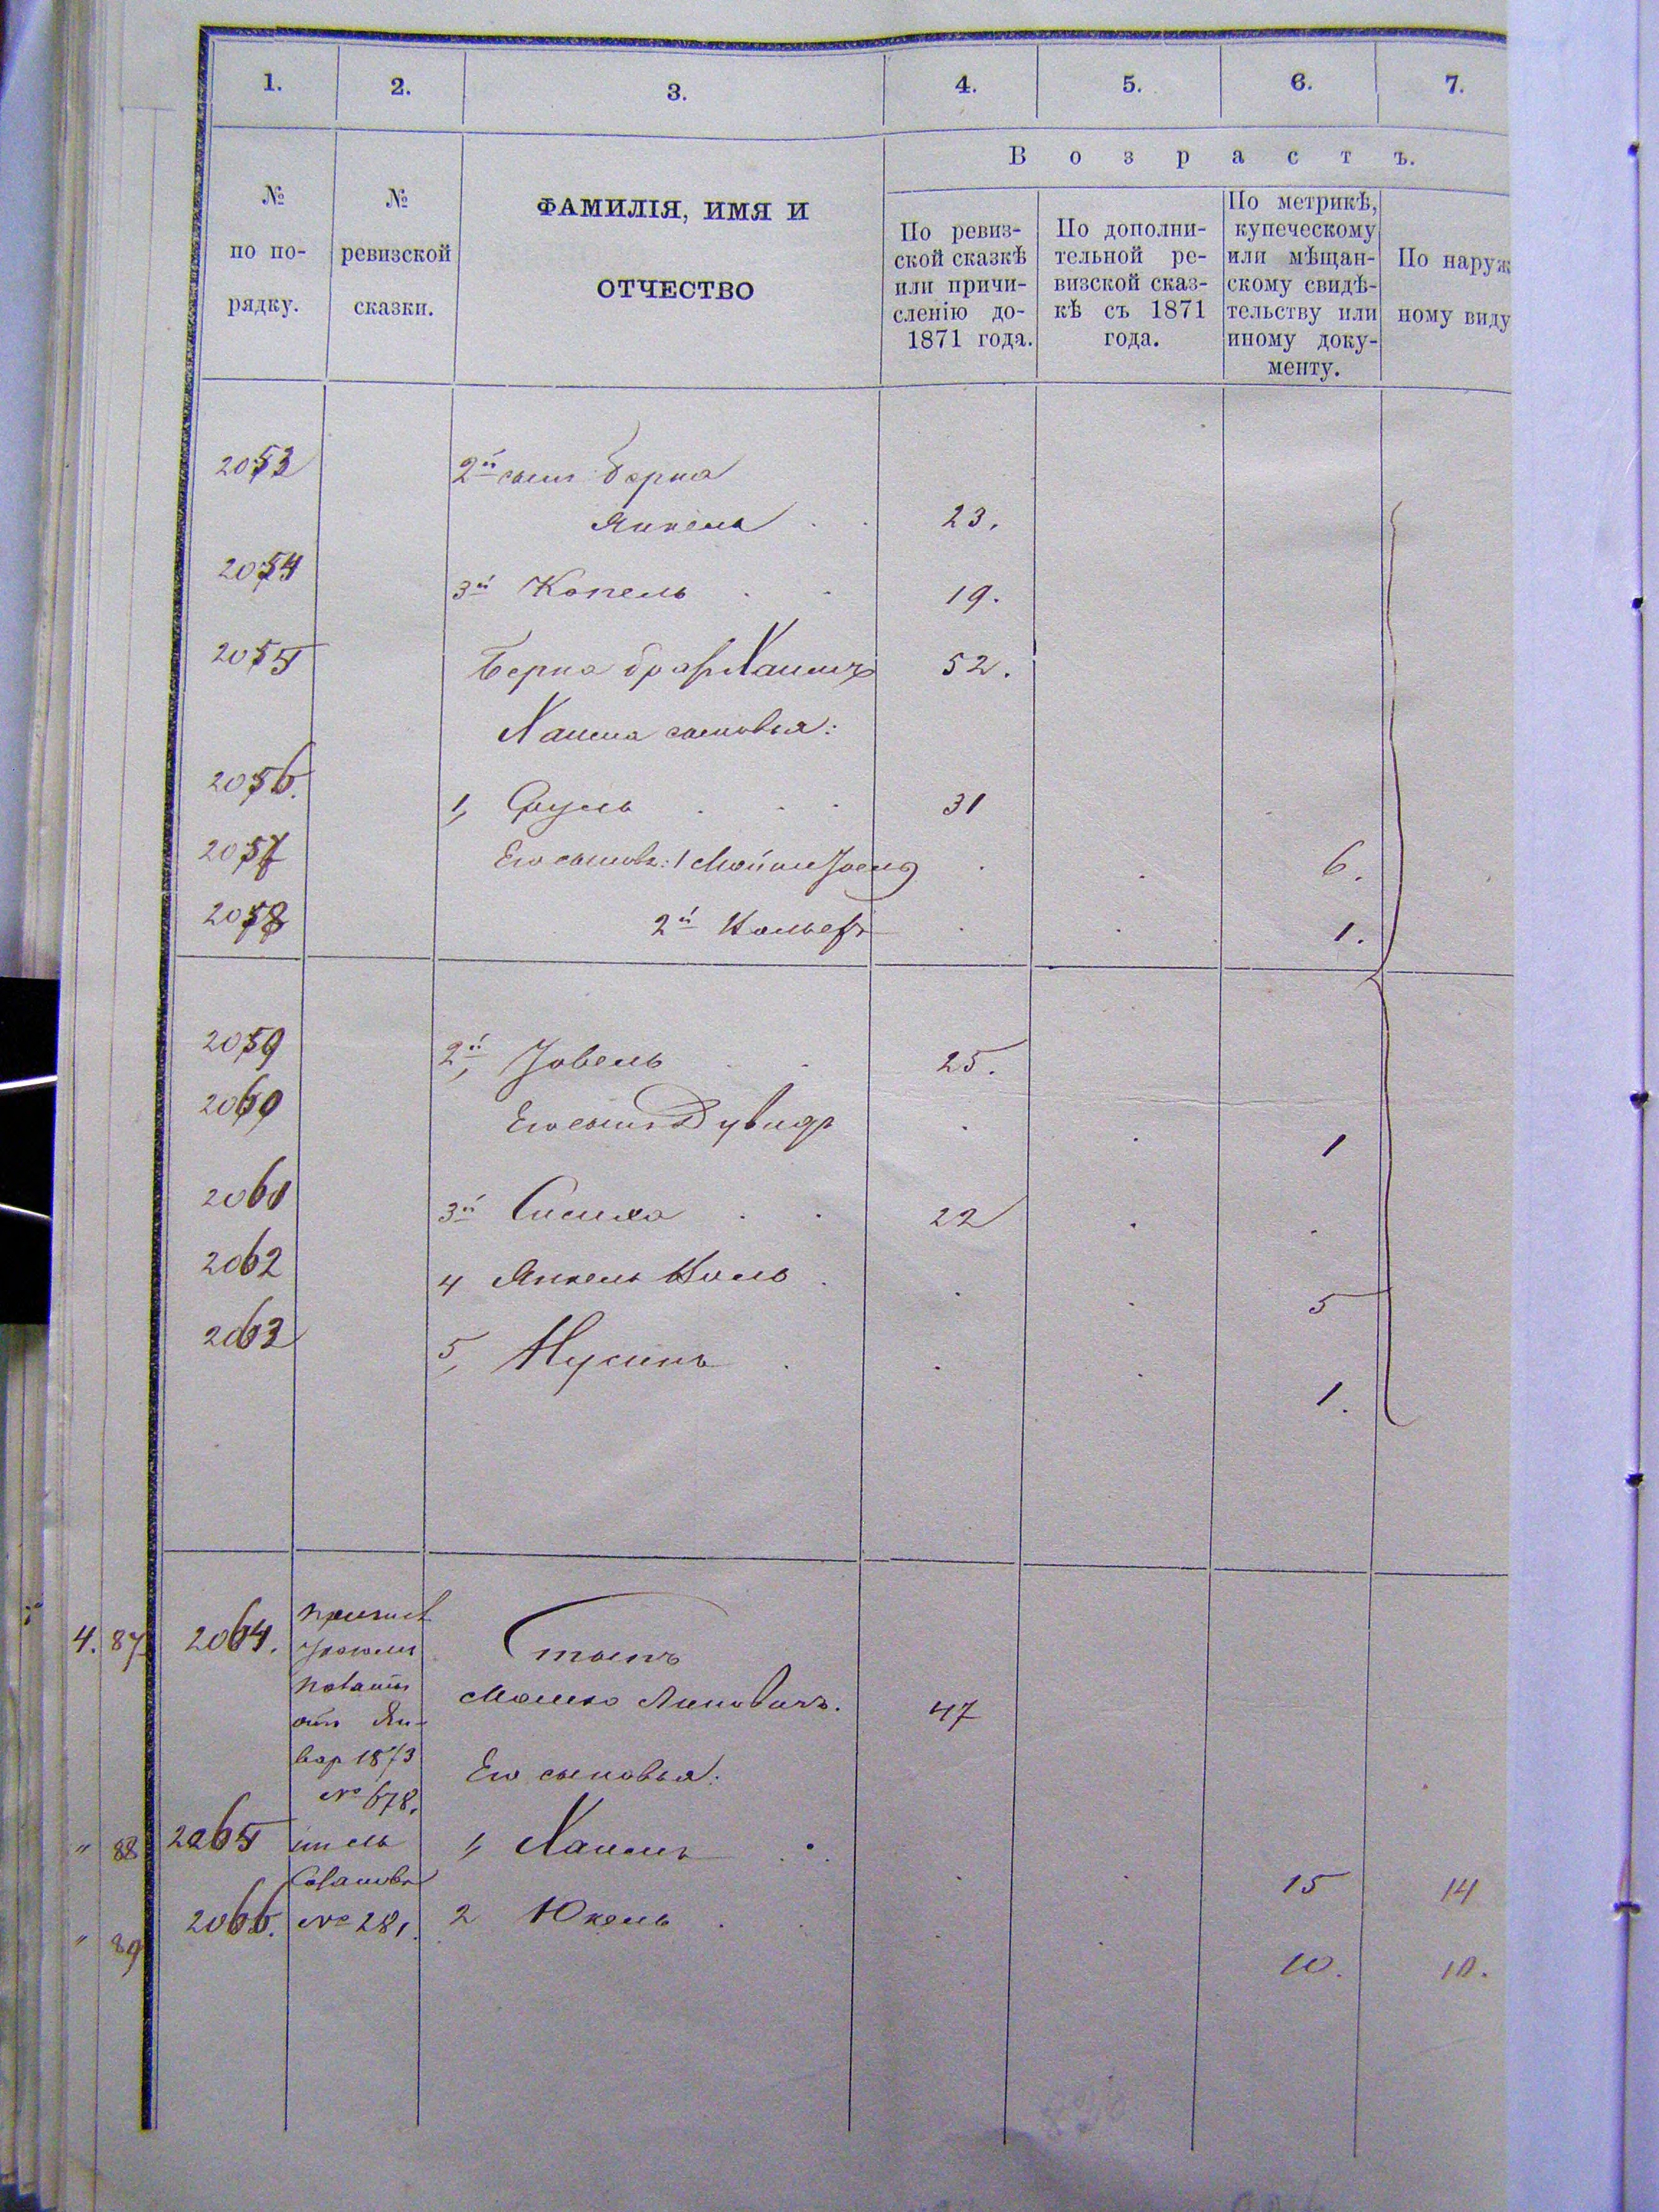 1. 2. 3. 4. 5. 6. 7.
В о з р а с т ъ.
№ по по-
рядку.
№
ревизской
сказки.
ФАМИЛІЯ, ИМЯ И
ОТЧЕСТВО
По ревиз-
ской сказкѣ
или причи-
сленію до-
1871 года.
По дополни-
тельной ре-
визской сказ-
кѣ съ 1871
года.
По метрикѣ,
купеческому
или мѣщан-
скому свидѣ-
тельству или
иному доку-
менту.
По наруж
ному виду
2053 2й сынъ Берка
Янкель 23.
2054 3й Копель 19.
2055 Берка братъ Хаимъ 52.
Хаима сыновья:
2056. 1, Сруль 31
2057 Его сыновья: 1 Мойше 6.
2058 2й 1.
2059 2й, Іовель 25.
2060 Его сынъ Дувидъ 1
2061 3й 22
2062 4 Янкель 5
2063 5, Нусинъ 1.
4. 87 2064.
Мошко 47
от Ян-
вар 1873
№ 678.
Его сыновья:
" 88 2065 1, Хаимъ 15 14
" 89 2066. № 281. 2 Юкель 10. 10.